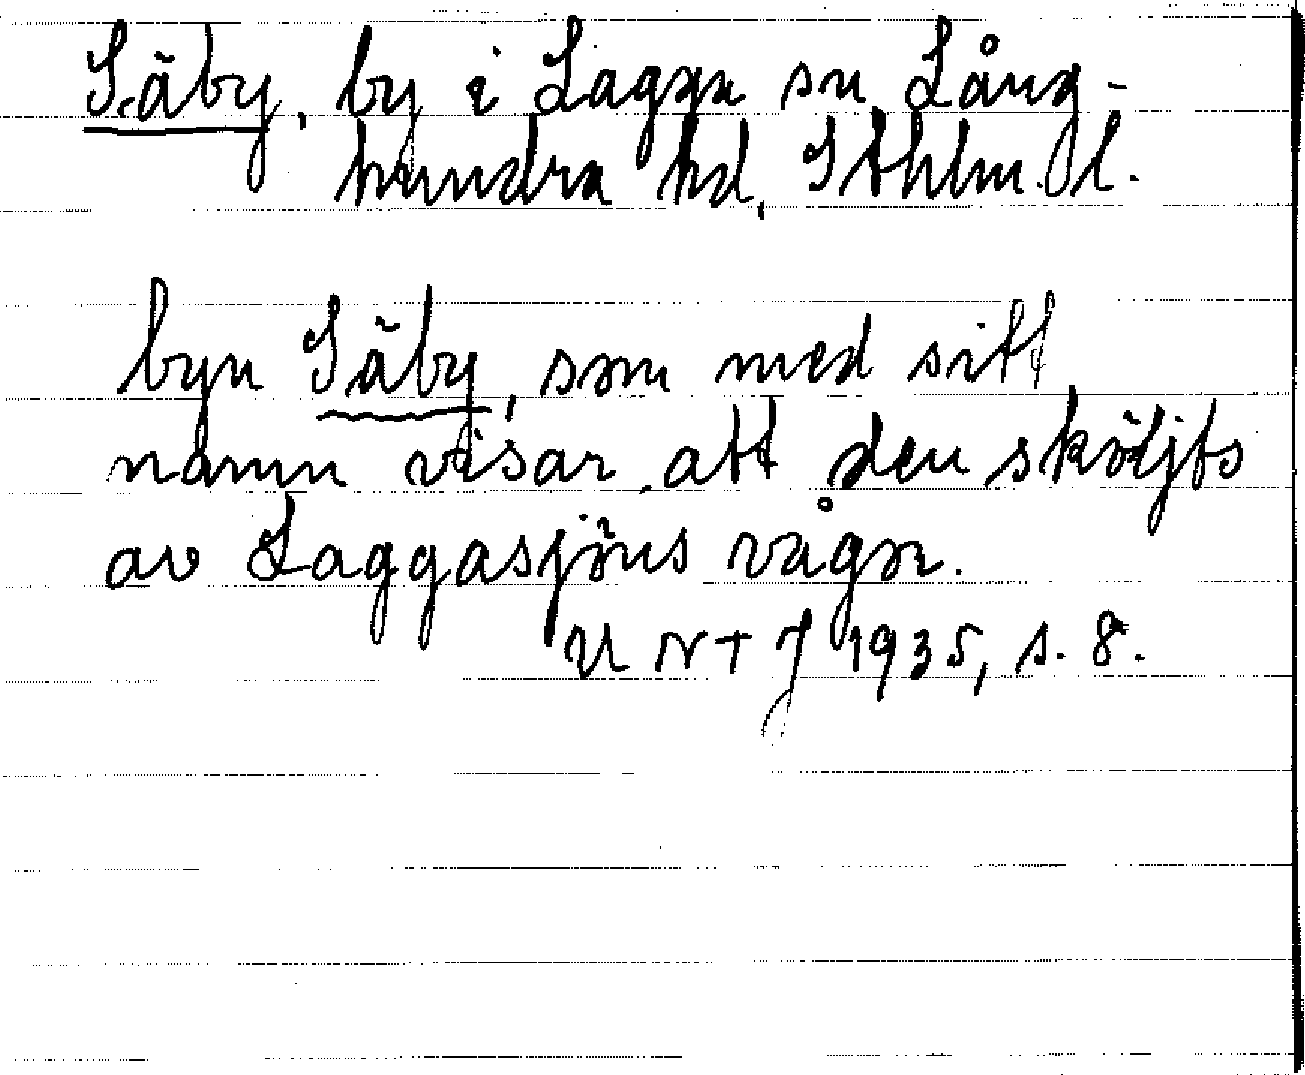 Säby, by i Lagga sn, Lång-
hundra hd, Sthlm. l.
byn Säby, som med sitt
namn visar, att den sköljts
av Laggasjöns vågor.
UNT J 1935, s. 8.